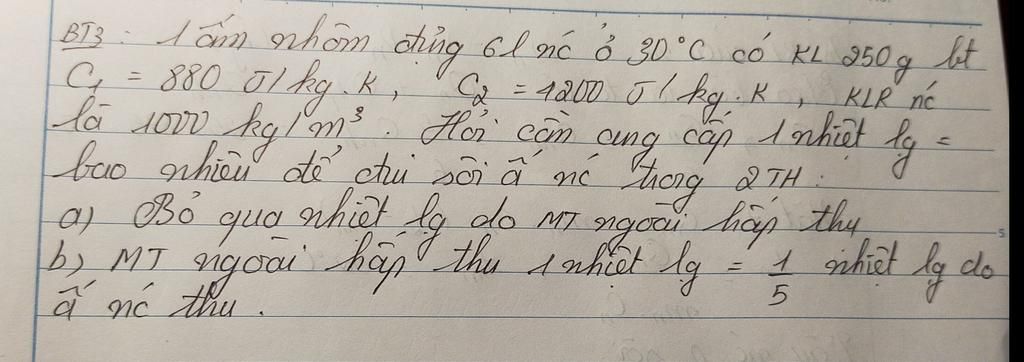 BT3: 1 ấm nhôm đựng 6l nc ở 30°C có KL 250g bt
C₁ = 880 J/kg.K, C₂ = 4200 J/kg.K, KLR nc
là 1000 kg/m³. Hỏi cần cung cấp 1 nhiệt lg =
bao nhiêu để đun sôi ấ nc trong 2TH:
a) Bỏ qua nhiệt lg do MT ngoài hấp thụ
b) MT ngoài hấp thu 1 nhiệt lg = 1/5 nhiệt lg do
ấ nc thu.